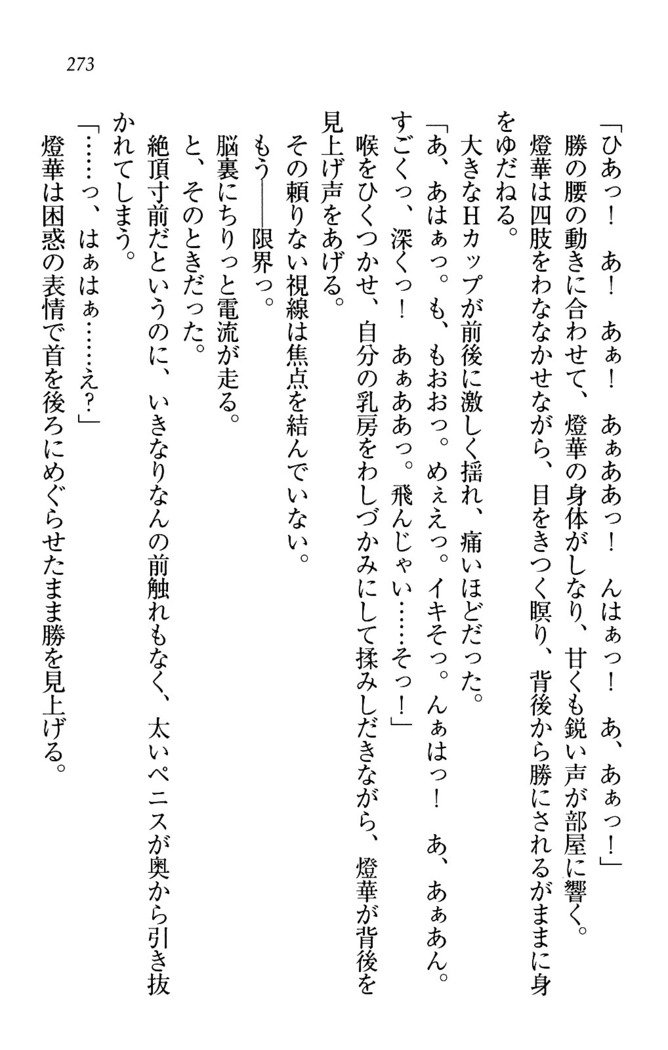 273
「ひあっ！　あ！　あぁ！　あぁああっ！　んはぁっ！　あ、あぁっ！」
勝の腰の動きに合わせて、燈華の身体がしなり、甘くも鋭い声が部屋に響く。
燈華は四肢をわななかせながら、目をきつく瞑り、背後から勝にされるがままに身
をゆだねる。
大きなHカップが前後に激しく揺れ、痛いほどだった。
「あ、あはぁっ。も、もおおっ。めぇえっ。イキそっ。んぁはっ！　あ、あぁあん。
すごくっ、深くっ！　あぁああっ。飛んじゃい……そっ！」
喉をひくつかせ、自分の乳房をわしづかみにして揉みしだきながら、燈華が背後を
見上げ声をあげる。
その頼りない視線は焦点を結んでいない。
もう――限界っ。
脳裏にちりっと電流が走る。
と、そのときだった。
絶頂寸前だというのに、いきなりなんの前触れもなく、太いペニスが奥から引き抜
かれてしまう。
「……っ、はぁはぁ……え？」
燈華は困惑の表情で首を後ろにめぐらせたまま勝を見上げる。